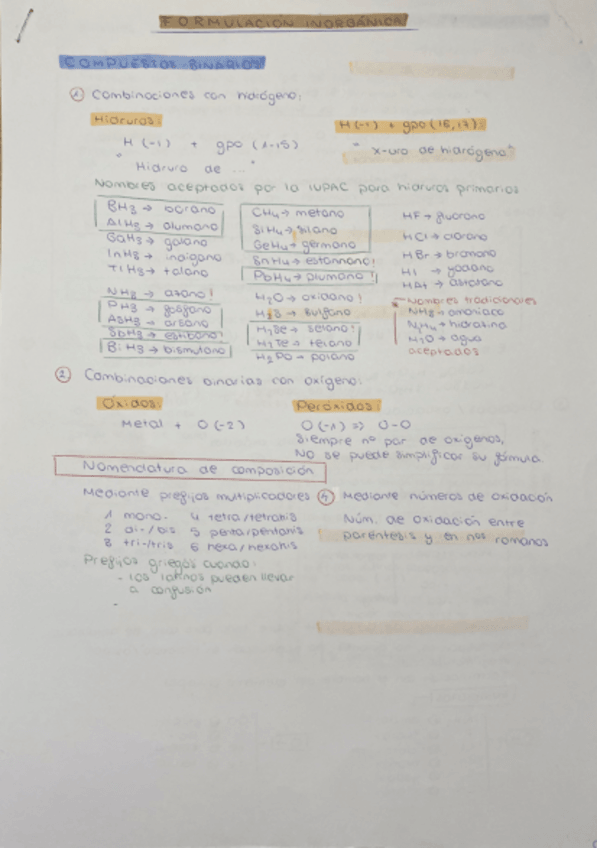 FORMULACIÓN INORGÁNICA
COMPUESTOS BINARIOS
① Combinaciones con hidrógeno:
Hidruros:
H (-1) + gpo (1-15)
"Hidruro de ..."
H(-1) + gpo (16,17):
"x-uro de hidrógeno"
Nombres aceptados por la IUPAC para hidruros primarios
BH3 → borano
AlH3 → alumano
GaH3 → galano
InH3 → indigano
TlH3 → talano
NH3 → azano!
PH3 → fosfano
AsH3 → arsano
SbH3 → estibano!
BiH3 → bismutano
CH4 → metano
SiH4 → silano
GeH4 → germano
SnH4 → estannano!
PbH4 → plumbano!
H2O → oxidano!
H2S → sulfano
H2Se → selano!
H2Te → telano
H2Po → polano
HF → fluorano
HCl → clorano
HBr → bromano
HI → yodano
HAt → astatano
* Nombres tradicionales
NH3 → amoniaco
N2H4 → hidrazina
H2O → agua
aceptados
② Combinaciones binarias con oxígeno:
Óxidos:
Metal + O (-2)
Peróxidos:
O (-1) => O-O
Siempre nº par de oxígenos,
NO se puede simplificar su fórmula
Nomenclatura de composición
Mediante prefijos multiplicadores
1 mono- 4 tetra/tetrakis
2 di-/bis 5 penta/pentakis
3 tri-/tris 6 hexa/hexakis
Prefijos griegos cuando:
- los latinos pueden llevar
a confusión
-
④ Mediante números de oxidación
Núm. de oxidación entre
paréntesis y en nos romanos